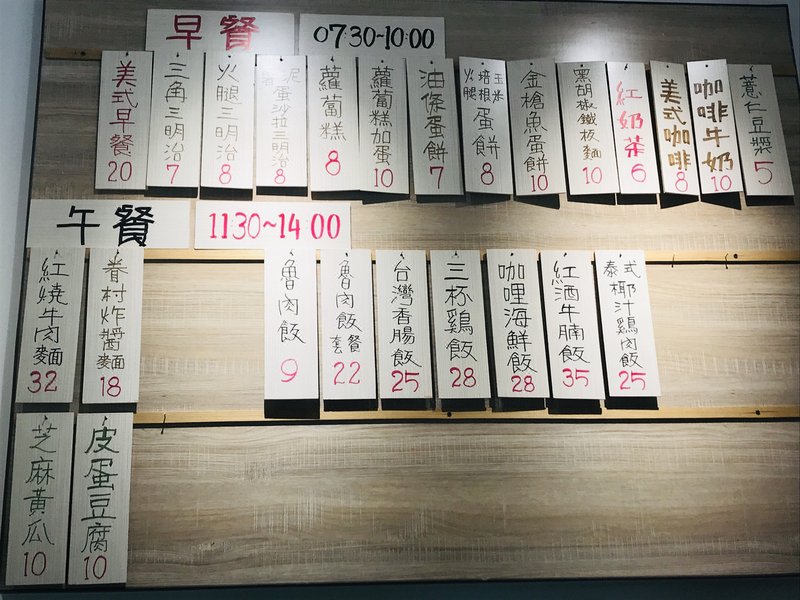 早餐
07:30~10:00
美式早餐
20
三角三明治
7
火腿三明治
8
泥蛋沙拉三明治
8
蘿蔔糕
8
蘿蔔糕加蛋
10
油條蛋餅
7
玉米
培根
火腿
蛋餅
8
金槍魚蛋餅
10
黑胡椒鐵板麵
10
紅奶茶
6
美式咖啡
8
咖啡牛奶
10
薏仁豆漿
5
午餐
11:30~14:00
紅燒牛肉麵
32
眷村炸醬麵
18
魯肉飯
9
魯肉飯套餐
22
台灣香腸飯
25
三杯鷄飯
28
咖哩海鮮飯
28
紅酒牛腩飯
35
泰式椰汁鷄肉飯
25
芝麻黃瓜
10
皮蛋豆腐
10